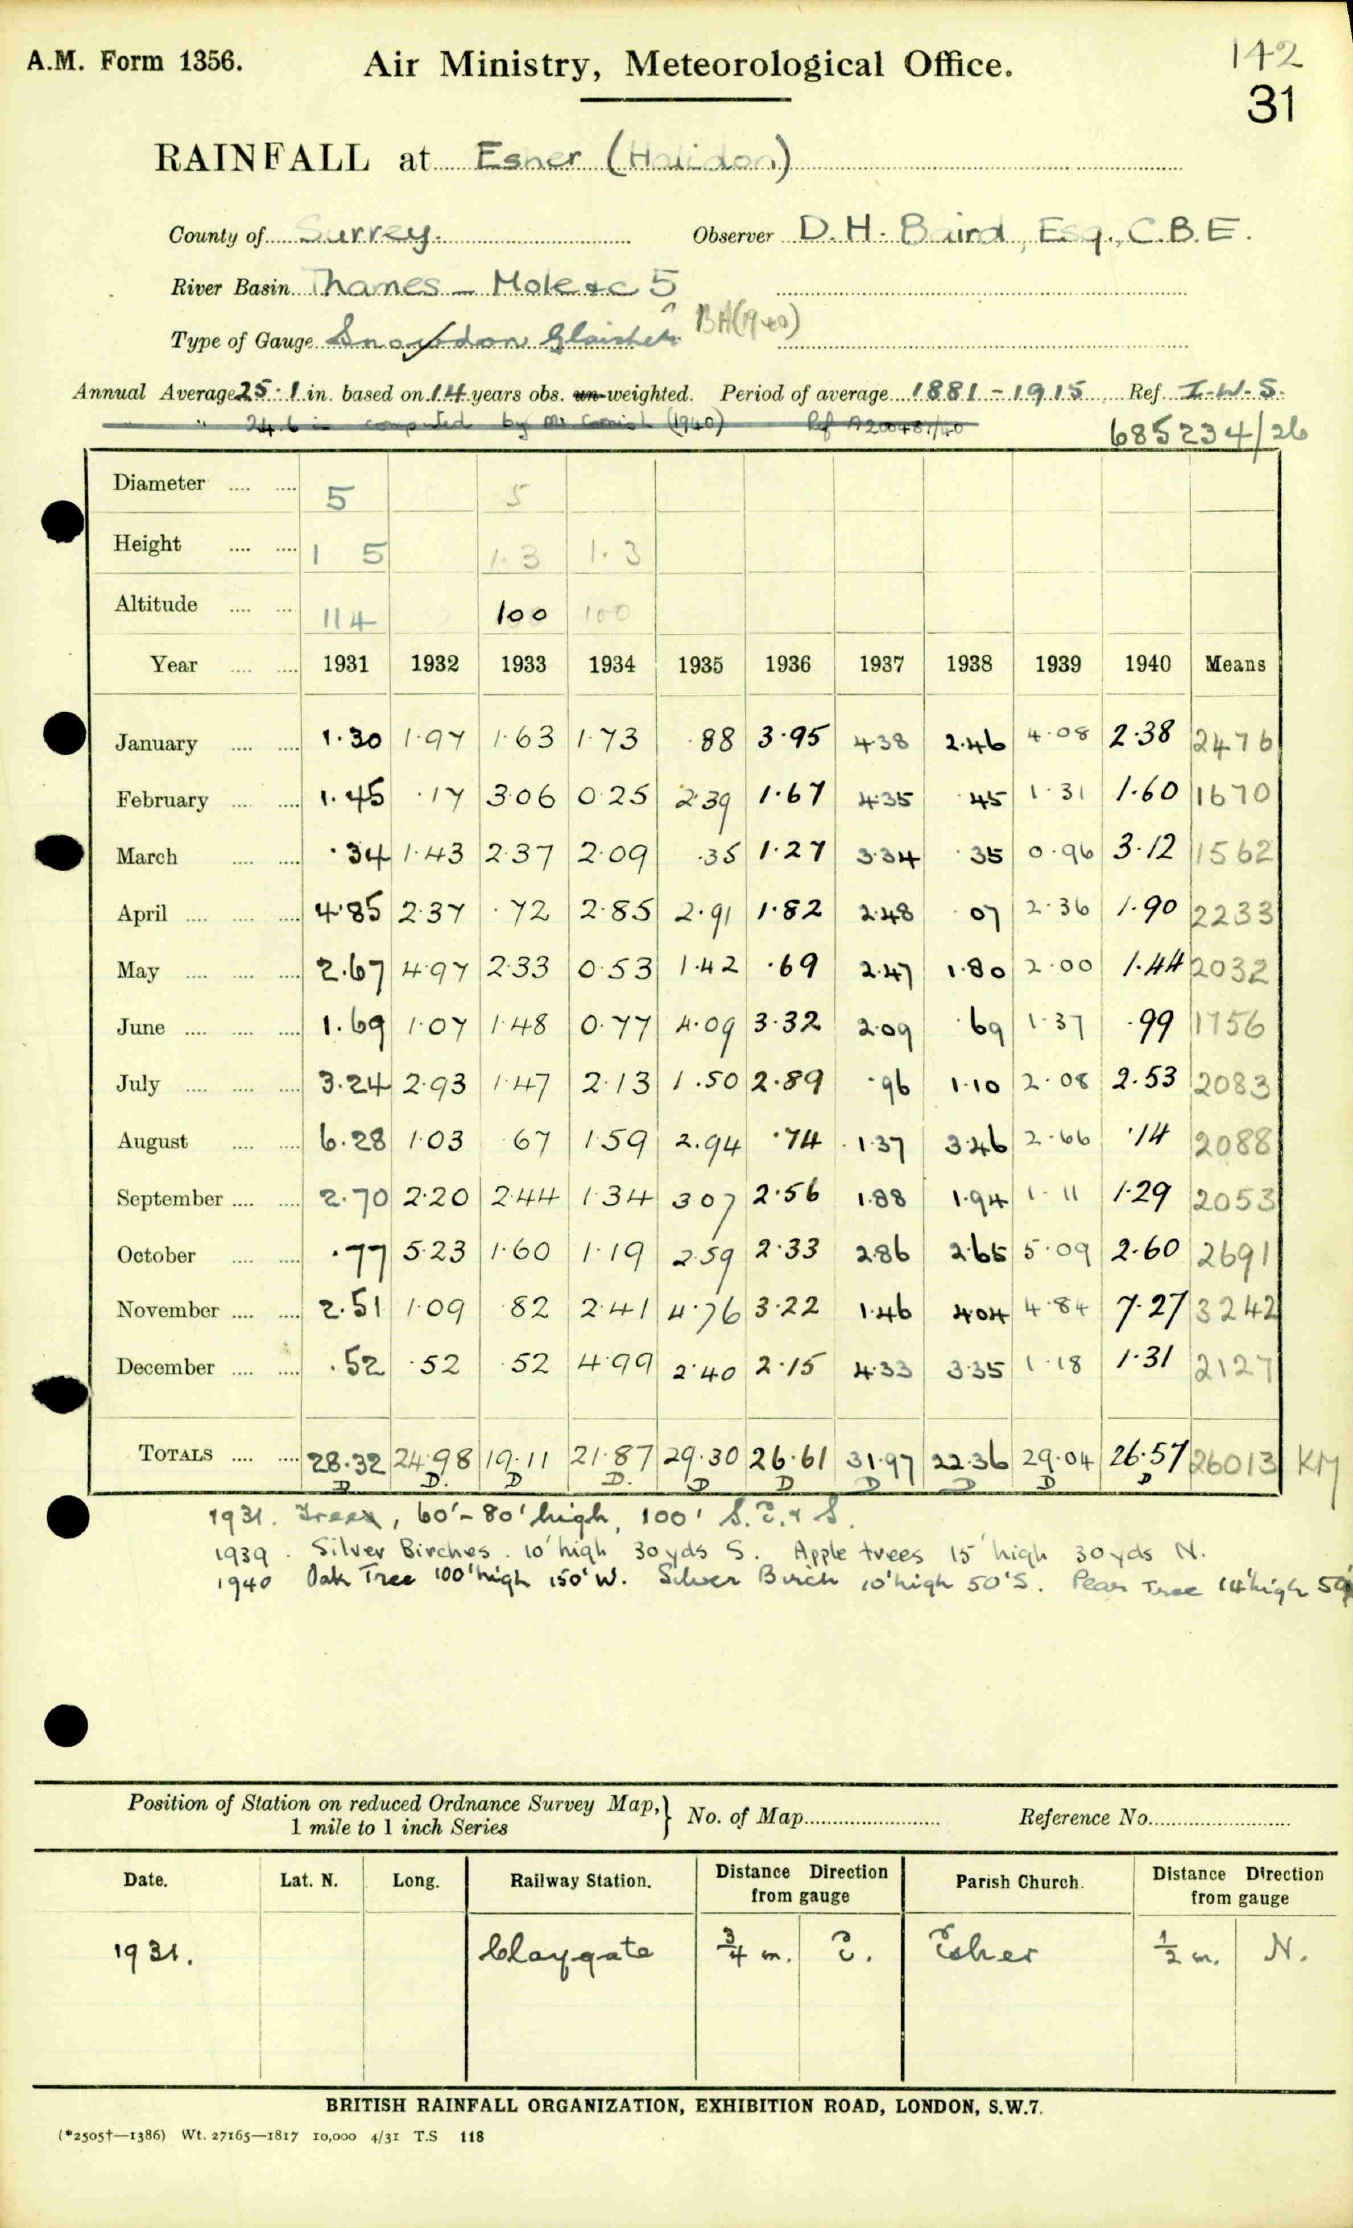 A.M. Form 1356. Air Ministry, Meteorological Office. 142
31
RAINFALL at Esher (Halidon)
County of Surrey. Observer D.H. Baird, Esq., C.B.E.
River Basin Thames - Mole &c 5
Type of Gauge Snowdon Glaisher BA(1940)
Annual Average 25.1 in. based on 14 years obs. un-weighted. Period of average 1881-1915 Ref. I.W.S.
" " 24.6 in computed by Mr Cornish (1940) Ref 685234/26
Diameter .... .... 5 5
Height .... .... 1 5 1.3 1.3
Altitude .... ... 114 100 100
Year .... .... 1931 1932 1933 1934 1935 1936 1937 1938 1939 1940 Means
January .... .... 1.30 1.97 1.63 1.73 .88 3.95 4.38 2.46 4.08 2.38 2476
February .... .... 1.45 .17 3.06 0.25 2.39 1.67 4.35 .45 1.31 1.60 1670
March .... .... .34 1.43 2.37 2.09 .35 1.27 3.34 .35 0.96 3.12 1562
April .... .... .... 4.85 2.37 .72 2.85 2.91 1.82 2.48 .07 2.36 1.90 2233
May .... .... .... 2.67 4.97 2.33 0.53 1.42 .69 2.47 1.80 2.00 1.44 2032
June .... .... .... 1.69 1.07 1.48 0.77 4.09 3.32 2.09 .69 1.37 .99 1756
July .... .... .... 3.24 2.93 1.47 2.13 1.50 2.89 .96 1.10 2.08 2.53 2083
August .... .... 6.28 1.03 .67 1.59 2.94 .74 1.37 3.46 2.66 .14 2088
September .... .... 2.70 2.20 2.44 1.34 3.07 2.56 1.88 1.94 1.11 1.29 2053
October .... .... .77 5.23 1.60 1.19 2.59 2.33 2.86 2.65 5.09 2.60 2691
November .... .... 2.51 1.09 .82 2.41 4.76 3.22 1.46 4.04 4.84 7.27 3242
December .... .... .52 .52 .52 4.99 2.40 2.15 4.33 3.35 1.18 1.31 2127
TOTALS .... .... 28.32 24.98 19.11 21.87 29.30 26.61 31.97 22.36 29.04 26.57 26013 KM
D D. D D. D D D D D D
1931. Trees, 60'-80' high, 100' S.E. & S.
1939. Silver Birches. 10' high 30 yds S. Apple trees 15' high 30 yds N.
1940 Oak Tree 100' high 150' W. Silver Birch 10' high 50' S. Pear Tree 14' high 50'
Position of Station on reduced Ordnance Survey Map,} No. of Map.................... Reference No....................
1 mile to 1 inch Series
Date. Lat. N. Long. Railway Station. Distance Direction from gauge Parish Church. Distance Direction from gauge
1931. Claygate 3/4 m. E. Esher 1/2 m. N.
BRITISH RAINFALL ORGANIZATION, EXHIBITION ROAD, LONDON, S.W.7.
(*2505†—1386) Wt. 27165—1817 10,000 4/31 T.S 118